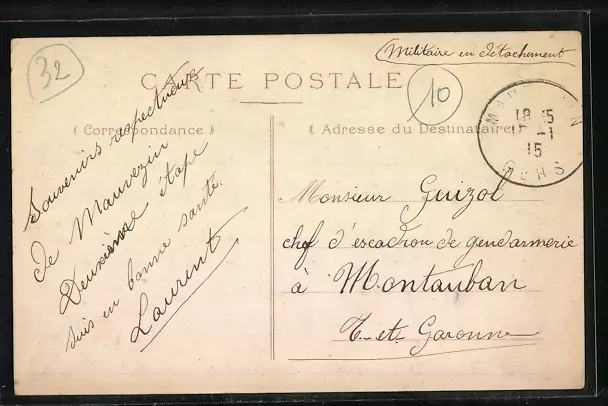 32
(Militaire en détachement)
CARTE POSTALE
10
( Correspondance )
( Adresse du Destinataire )
18 15
-1
15
GERS
Souvenirs respectueux
de Mauvezin
Deuxième étape
suis en bonne santé.
Laurent
Monsieur Guizol
chef d'escadron de gendarmerie
à Montauban
T-et-Garonne